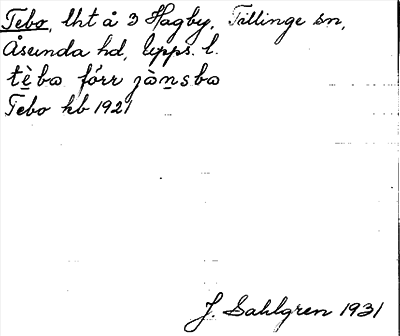 Tebo, lht å 3 Hagby, Tillinge sn,
Åsunda hd, Upps. l.
tèbω fórr jànsbω
Tebo kb 1921
J. Sahlgren 1931